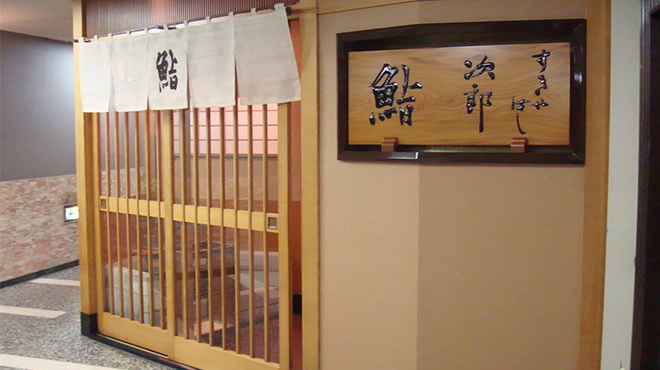 鮨
すきやばし
次郎
鮨